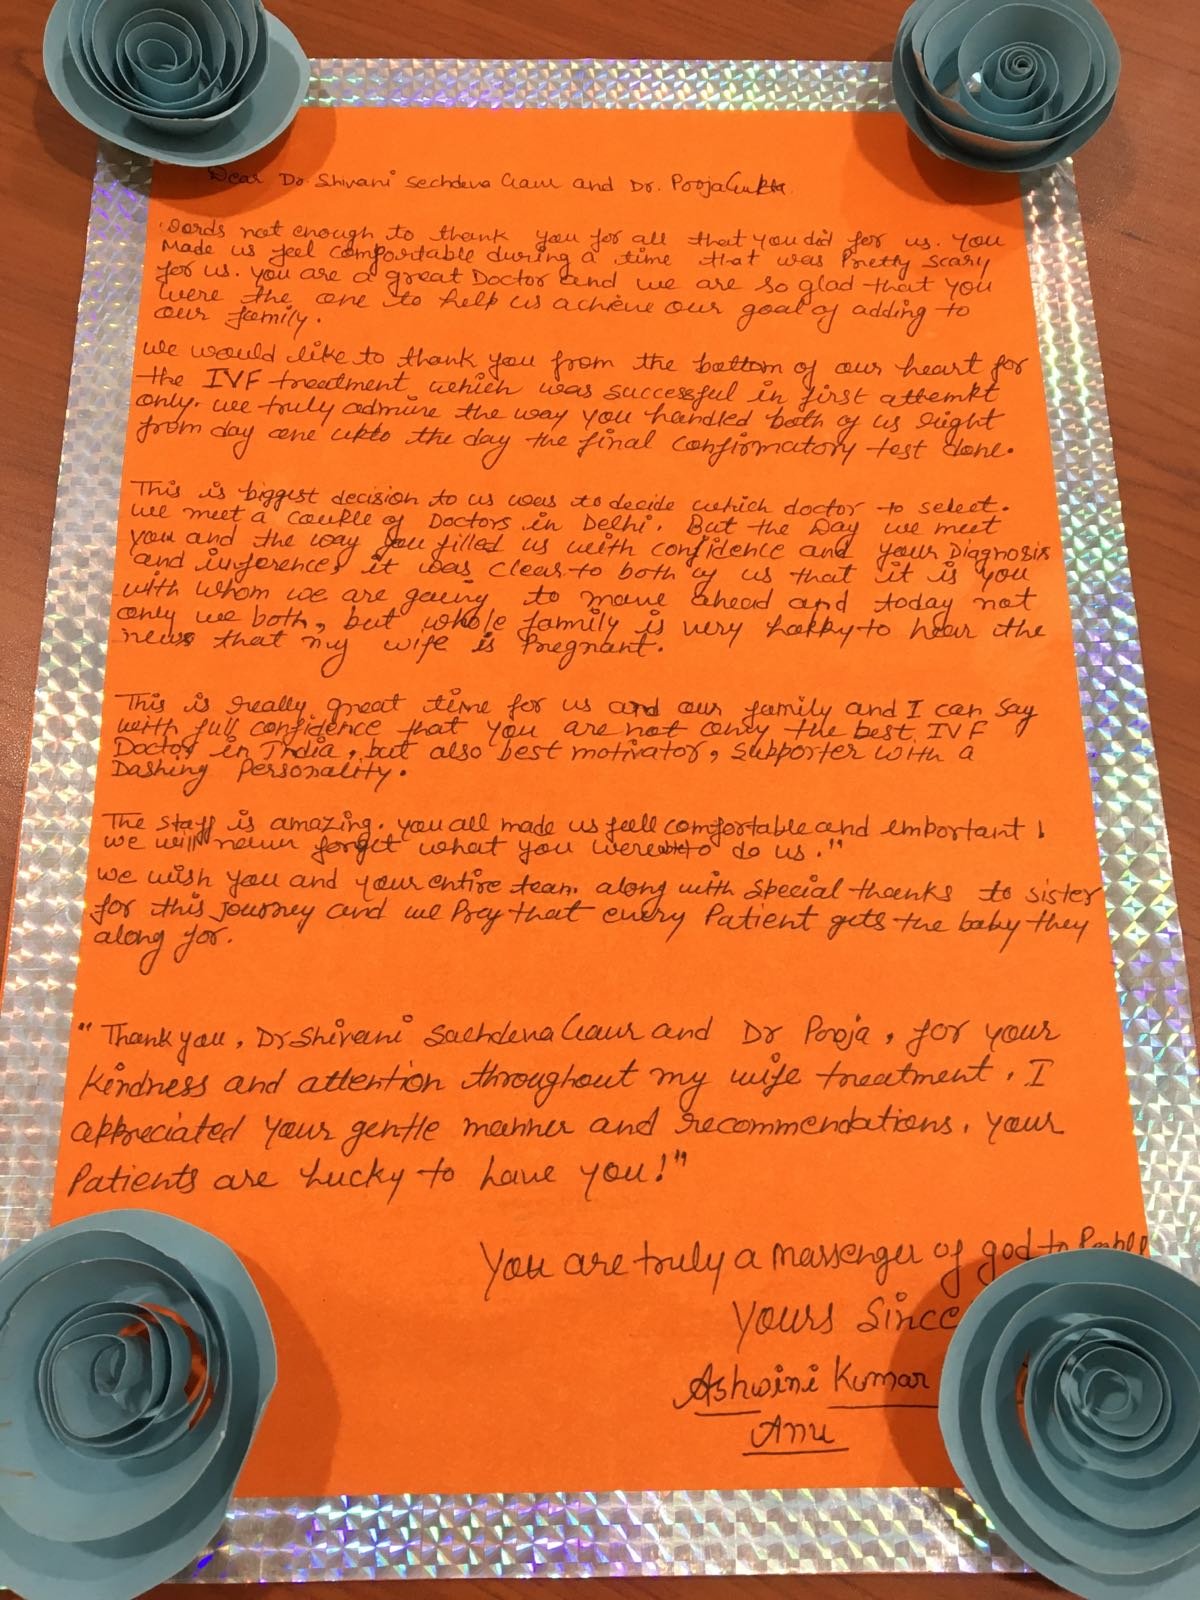 Dear Dr. Shivani Sachdeva Gaur and Dr. Pooja Gupta
Words not enough to thank you for all that you did for us. You
Made us feel Comfortable during a time that was Pretty scary
for us. you are a great Doctor and we are so glad that you
were the one to help us achieve our goal of adding to
our family.
we would like to thank you from the bottom of our heart for
the IVF treatment which was successful in first attempt
only. we truly admire the way you handled both of us right
from day one upto the day the final confirmatory test done.
This is biggest decision to us was to decide which doctor to select.
we meet a couple of Doctors in Delhi. But the Day we meet
you and the way you filled us with confidence and your Diagnosis
and inferences it was clear to both of us that it is you
with whom we are going to move ahead and today not
only we both, but whole family is very happy to hear the
news that my wife is Pregnant.
This is really great time for us and our family and I can Say
with full confidence that you are not only the best IVF
Doctor in India, but also best motivator, supporter with a
Dashing Personality.
The staff is amazing. you all made us feel comfortable and important!
we will never forget what you were to do us."
we wish you and your entire team along with special thanks to sister
for this journey and we Pray that every Patient gets the baby they
along for.
"Thank you, Dr Shivani Sachdeva Gaur and Dr Pooja, for your
kindness and attention throughout my wife treatment. I
appreciated your gentle manner and recommendations. your
Patients are lucky to have you!"
You are truly a massenger of god to
Yours Since
Ashwini Kumar
Anu